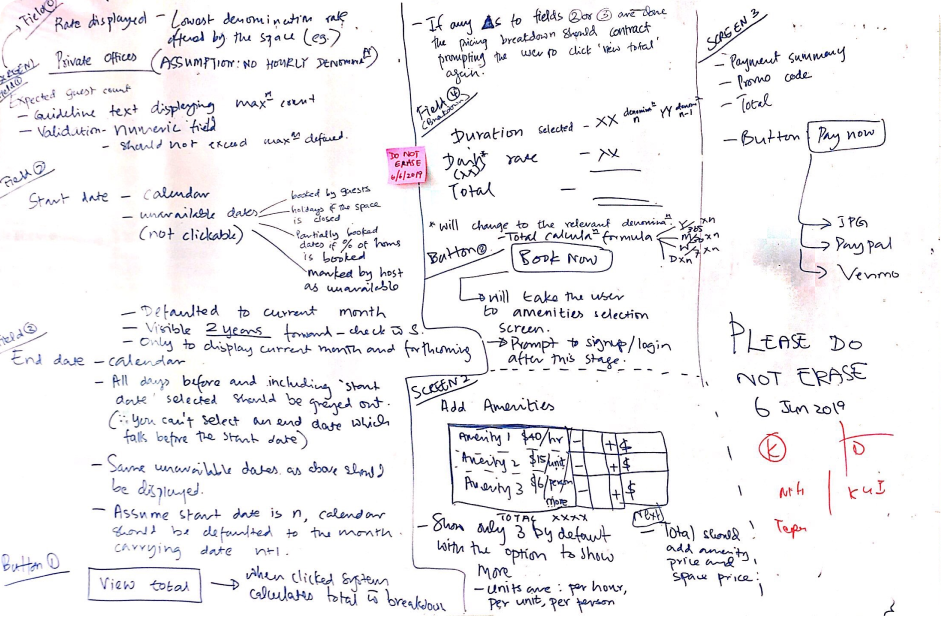 Field
Rate displayed - Lowest denomination rate
offered by the space (eg:)
SCREEN 1
Private Offices (ASSUMPTION: NO HOURLY DENOMINAⁿ)
Field ①
Expected guest count
- Guideline text displaying maxᵐ count
- Validation - Numeric field
- should not exceed maxᵐ defined.
Field ②
Start date - calendar
- unavailable dates
(not clickable)
booked by guests
holidays if the space
is closed
Partially booked
dates if % of hours
is booked
marked by host
as unavailable
- Defaulted to current month
- Visible 2 years forward - check w S.
- Only to display current month and forthcoming
Field ③
End date - calendar
- All days before and including 'start
date' selected should be greyed out.
(∵ you can't select an end date which
falls before the start date)
- Same unavailable dates as above should
be displayed.
- Assume start date is n, calendar
should be defaulted to the month
carrying date n+1.
Button ①
View total
→ when clicked system
calculates total w breakdown
- If any Δs to fields ② or ③ are done
the pricing breakdown should contract
prompting the user to click 'view total'
again.
DO NOT
ERASE
6/6/2019
Field ④
(Breakdown)
Duration selected - XX denominaⁿ n YY denomⁿ n-1
Daily* rate - XX
(XX)
Total -
* will change to the relevant denominaⁿ.
- Total calculaⁿ formula
Y/365 xn
M/30 xn
W/7 xn
Dxn
Button ②
Book Now
→ will take the user
to amenities selection
screen.
→ Prompt to signup/login
after this stage.
SCREEN 2
Add Amenities
Amenity 1 $40/hr - + $
Amenity 2 $15/unit - + $
Amenity 3 $6/person - + $
more
TOTAL XXXX
Next
- Show only 3 by default
with the option to show
more
- units are: per hour,
per unit, per person
- Total should
add amenity
price and
space price
SCREEN 3
- Payment summary
- Promo code
- Total
- Button Pay now
→ IPG
→ Paypal
→ Venmo
PLEASE DO
NOT ERASE
6 Jun 2019
K
D
K & I